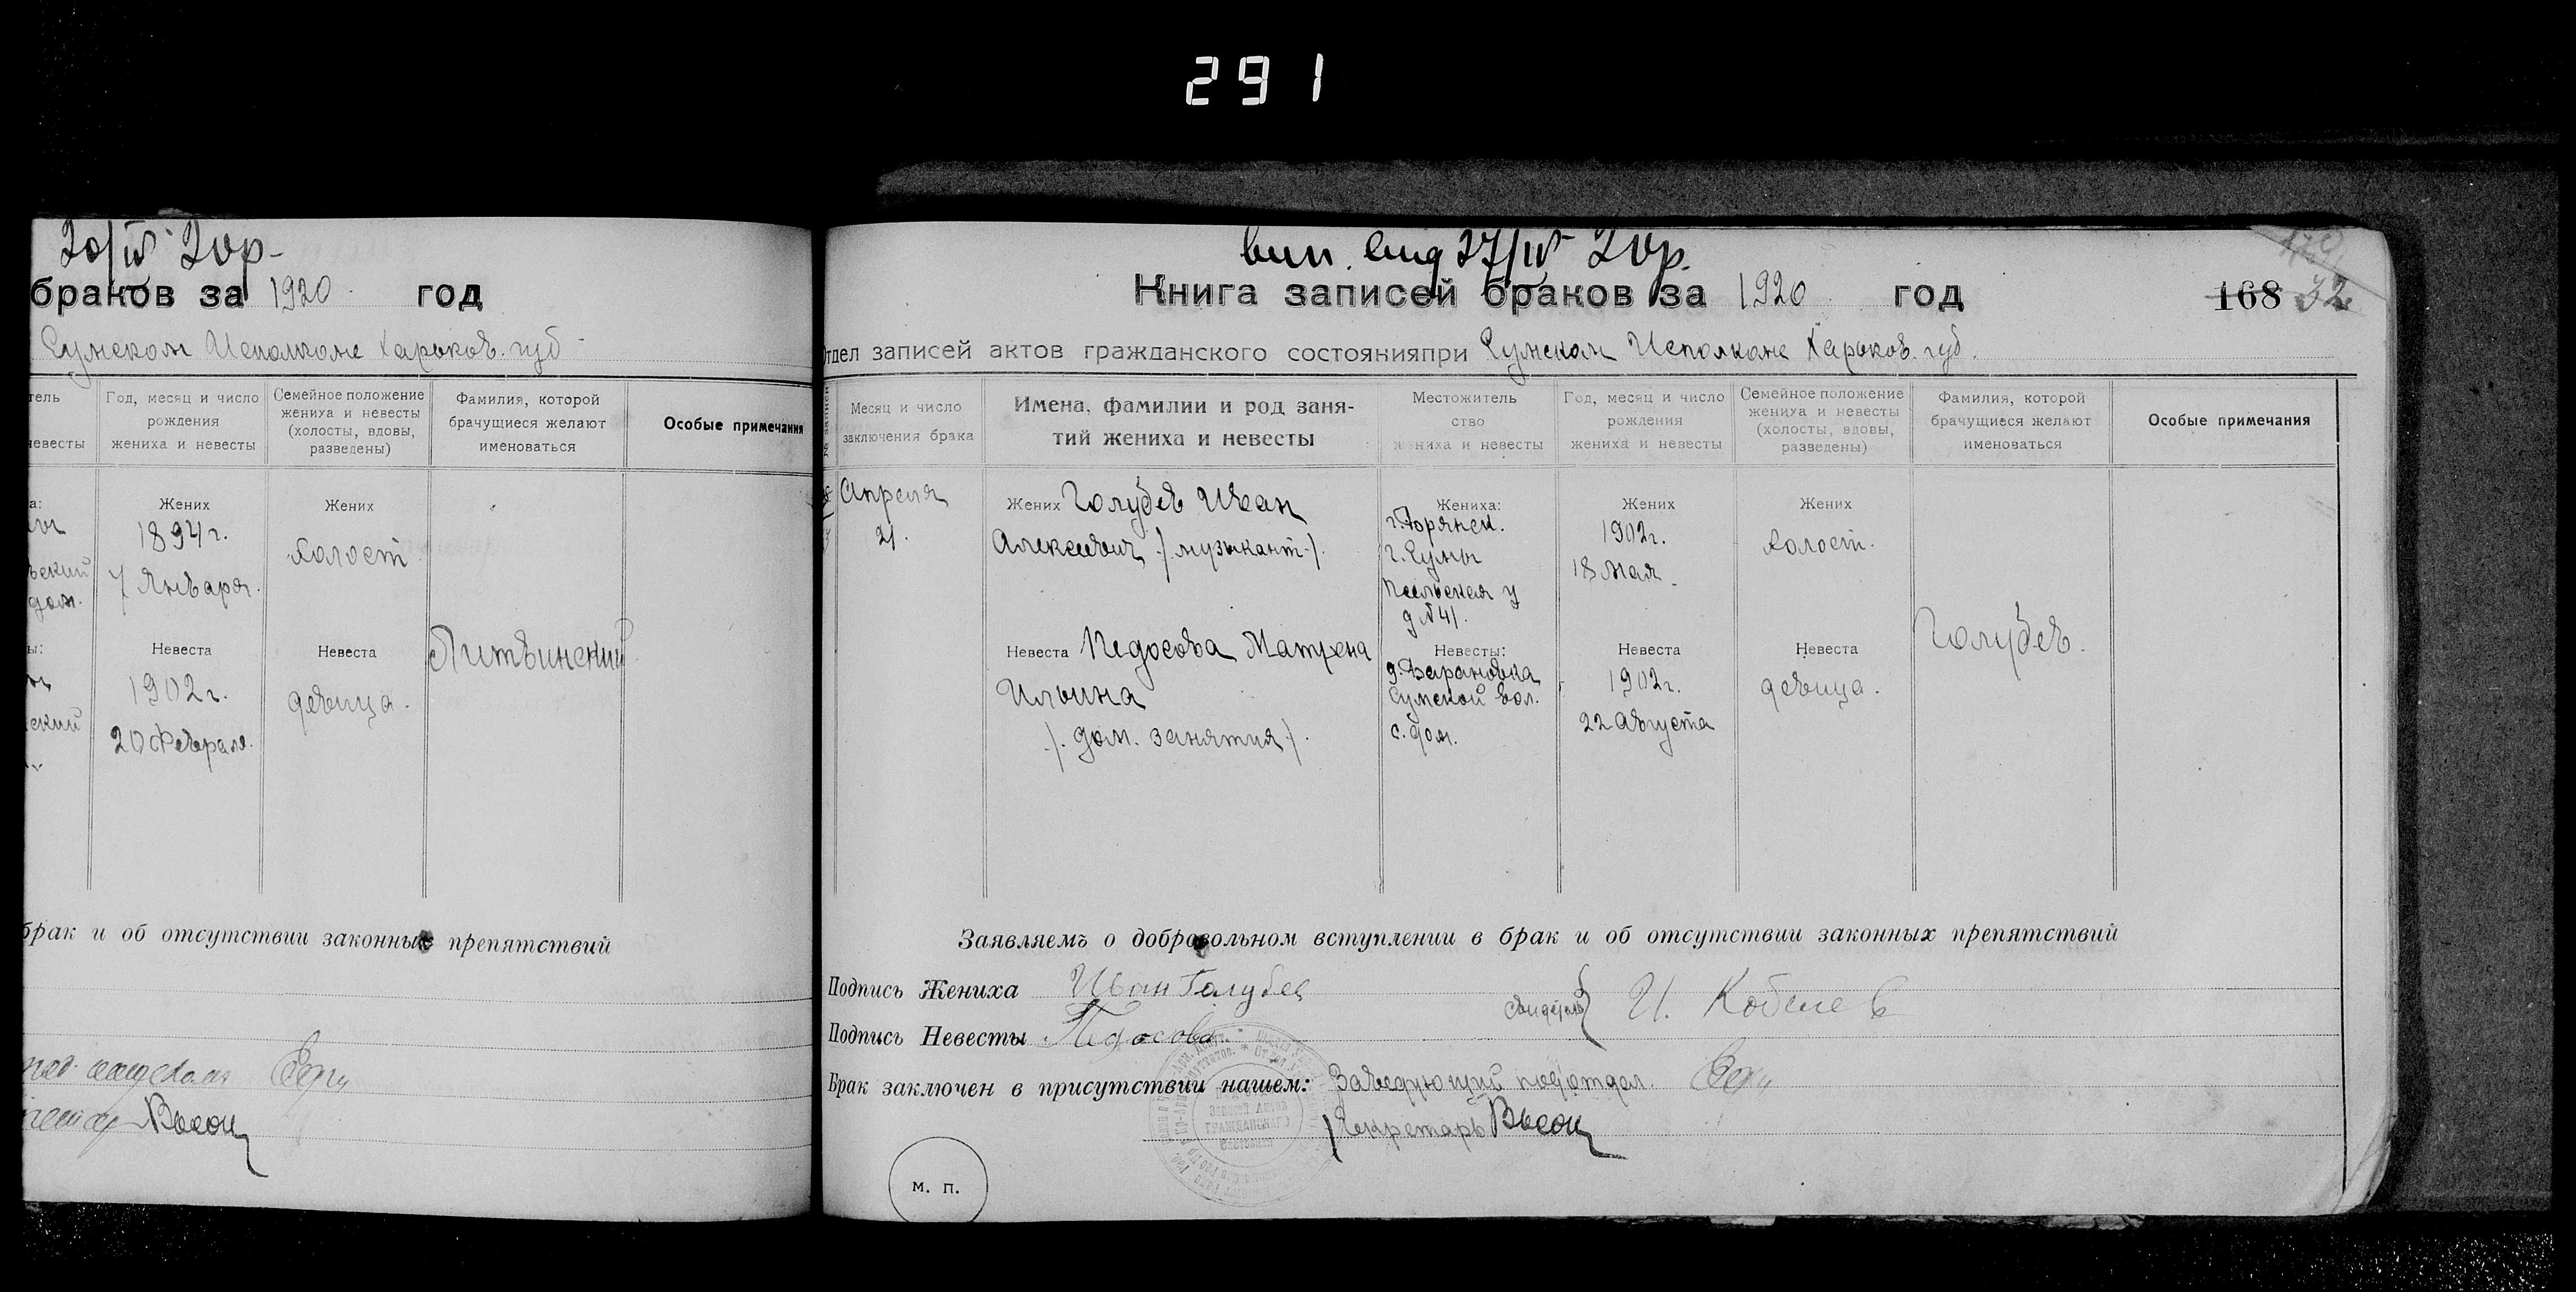 291
20/IV 20р.
браков за 1920 год
Сумском Исполкоме Харьков. губ
Год, месяц и число рождения жениха и невесты
Семейное положение жениха и невесты (холосты, вдовы, разведены)
Фамилия, которой брачущиеся желают именоваться
Особые примечания
Жених
1894 г.
7 Января.
Жених
холост
Невеста
1902 г.
20 Февраля.
Невеста
девица.
Литвинский
брак и об отсутствии законных препятствий
вип. вид 27/IV 20р.
Книга записей браков за 1920 год
168 32
Отдел записей актов гражданского состоянияпри Сумском Исполкоме Харьков. губ.
№ записи
Месяц и число заключения брака
Имена, фамилии и род занятий жениха и невесты
Местожительство жениха и невесты
Год, месяц и число рождения жениха и невесты
Семейное положение жениха и невесты (холосты, вдовы, разведены)
Фамилия, которой брачущиеся желают именоваться
Особые примечания
Апреля
21.
Жених Голубев Иван
Алексеевич /.музыкант./
Жениха:
г. Сумы
Псельская у
д №41.
Жених
1902 г.
18 Мая.
Жених
холост.
Невеста Педосова Матрена
Ильина
/. дом. занятия/.
Невесты:
д. Барановка
Сумской вол.
с. дом.
Невеста
1902 г.
22 Августа
Невеста
девица.
Голубев.
Заявляемъ о добровольном вступлении в брак и об отсутствии законных препятствий
Подпись Жениха Иван Голубев
Свидетель И. Кобелев
Подпись Невесты Педосова
Брак заключен в присутствии нашем: Заведующий подотдел.
Секретарь
м. п.